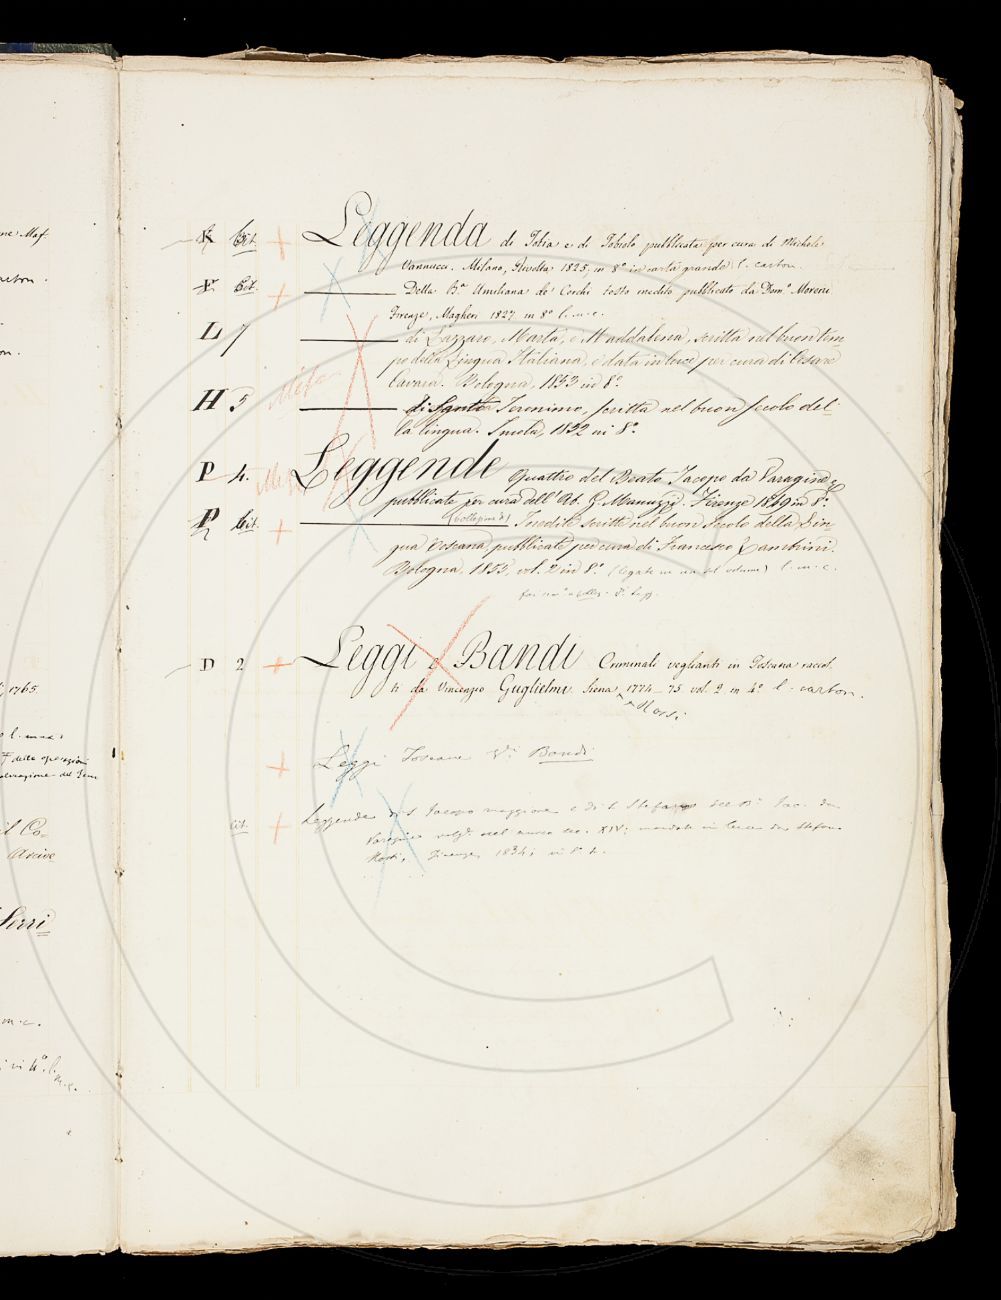 me Maf.
K Cit. Leggenda di Tobia e di Tobiolo pubblicata per cura di Michele
Vannucci. Milano, Rivolta 1825, in 8° in carta grande l. carton.
F Cit. Della B.ª Umiliana de' Cerchi testo inedito pubblicato da Dom.° Moreni
Firenze, Magheri 1827 in 8° l. m. c.
L 7 di Lazzaro, Marta, e Maddalena, scritta nel buon tem
po della Lingua Italiana, e data in luce per cura di Cesare
Cavara. Bologna, 1853 in 8°.
H 5 di Santo Ieronimo, scritta nel buon secolo del
la lingua. Imola, 1852 in 8°.
P 4. Leggende Quattro del Beato Jacopo da Varagine
pubblicate per cura dell'Ab. G. Manuzzi. Firenze 1849 in 8°.
P Cit. (collezione di) Inedite scritte nel buon secolo della Lin
gua Toscana, pubblicate per cura di Francesco Zambrini.
Bologna, 1855, vol. 2 in 8°. (legate in un sol volume) l. m. c.
D 2 Leggi e Bandi Criminali veglianti in Toscana raccol
ti da Vincenzio Guglielmo Siena 1774-75 vol. 2 in 4° l. carton.
Rossi
Leggi Toscane V.i Bandi
Cit. Leggenda di S. Jacopo maggiore e di S. Stefano del B. Jac. da
Varagine volg. nel buon sec. XIV: mandata in luce da Stefano
Rossi, Firenze, 1834, in 8°.
1765
delle operazioni
il Co-
Serri
m. c.
in 4° l.
m. c.